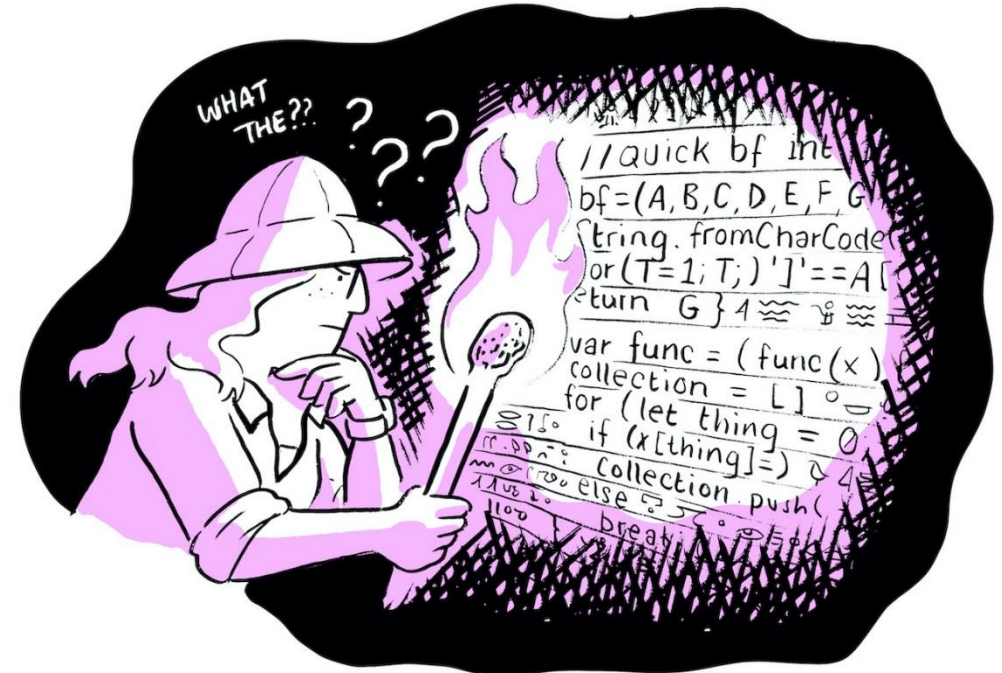 WHAT
THE??
? ? ?
//Quick bf int
bf=(A,B,C,D,E,F,G
String.fromCharCode(
or(T=1;T;)']'==A[
eturn G}
var func = (func(x)
collection = []
for (let thing = 0
if (x[thing]=)
collection.push(
else
break